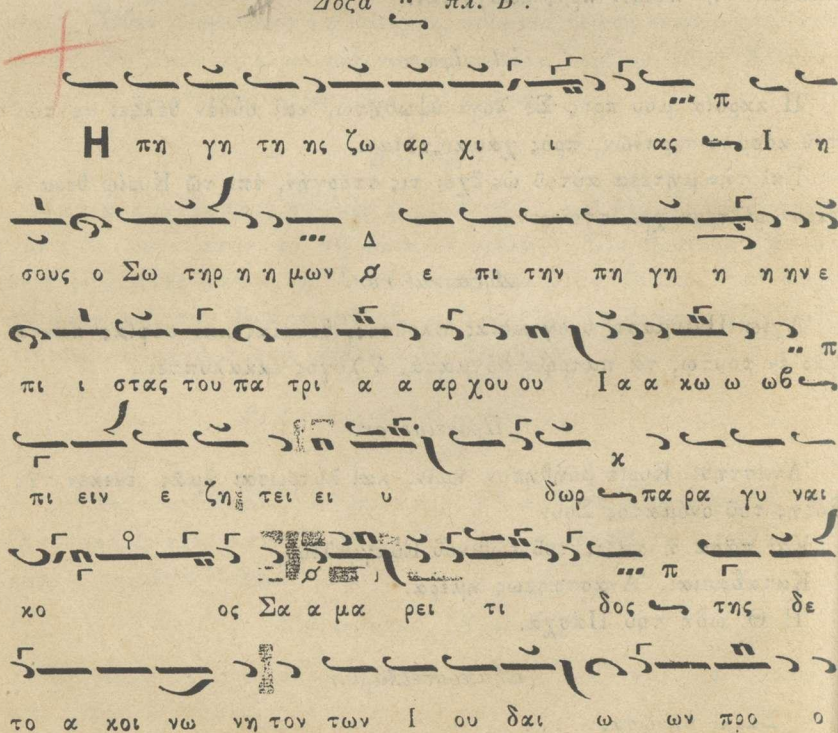 Δόξα πλ. Β΄.
Η πη γη τη ης ζω αρ χι ι ας Ι η
σους ο Σω τηρ η η μων ε πι την πη γη η η ην ε
πι ι στας του πα τρι α α αρ χου ου Ι α α κω ω ωβ
πι ειν ε ζη τει ει υ δωρ πα ρα γυ ναι
κο ος Σα α μα ρει τι δος της δε
το α κοι νω νη τον των Ι ου δαι ω ων προ ο